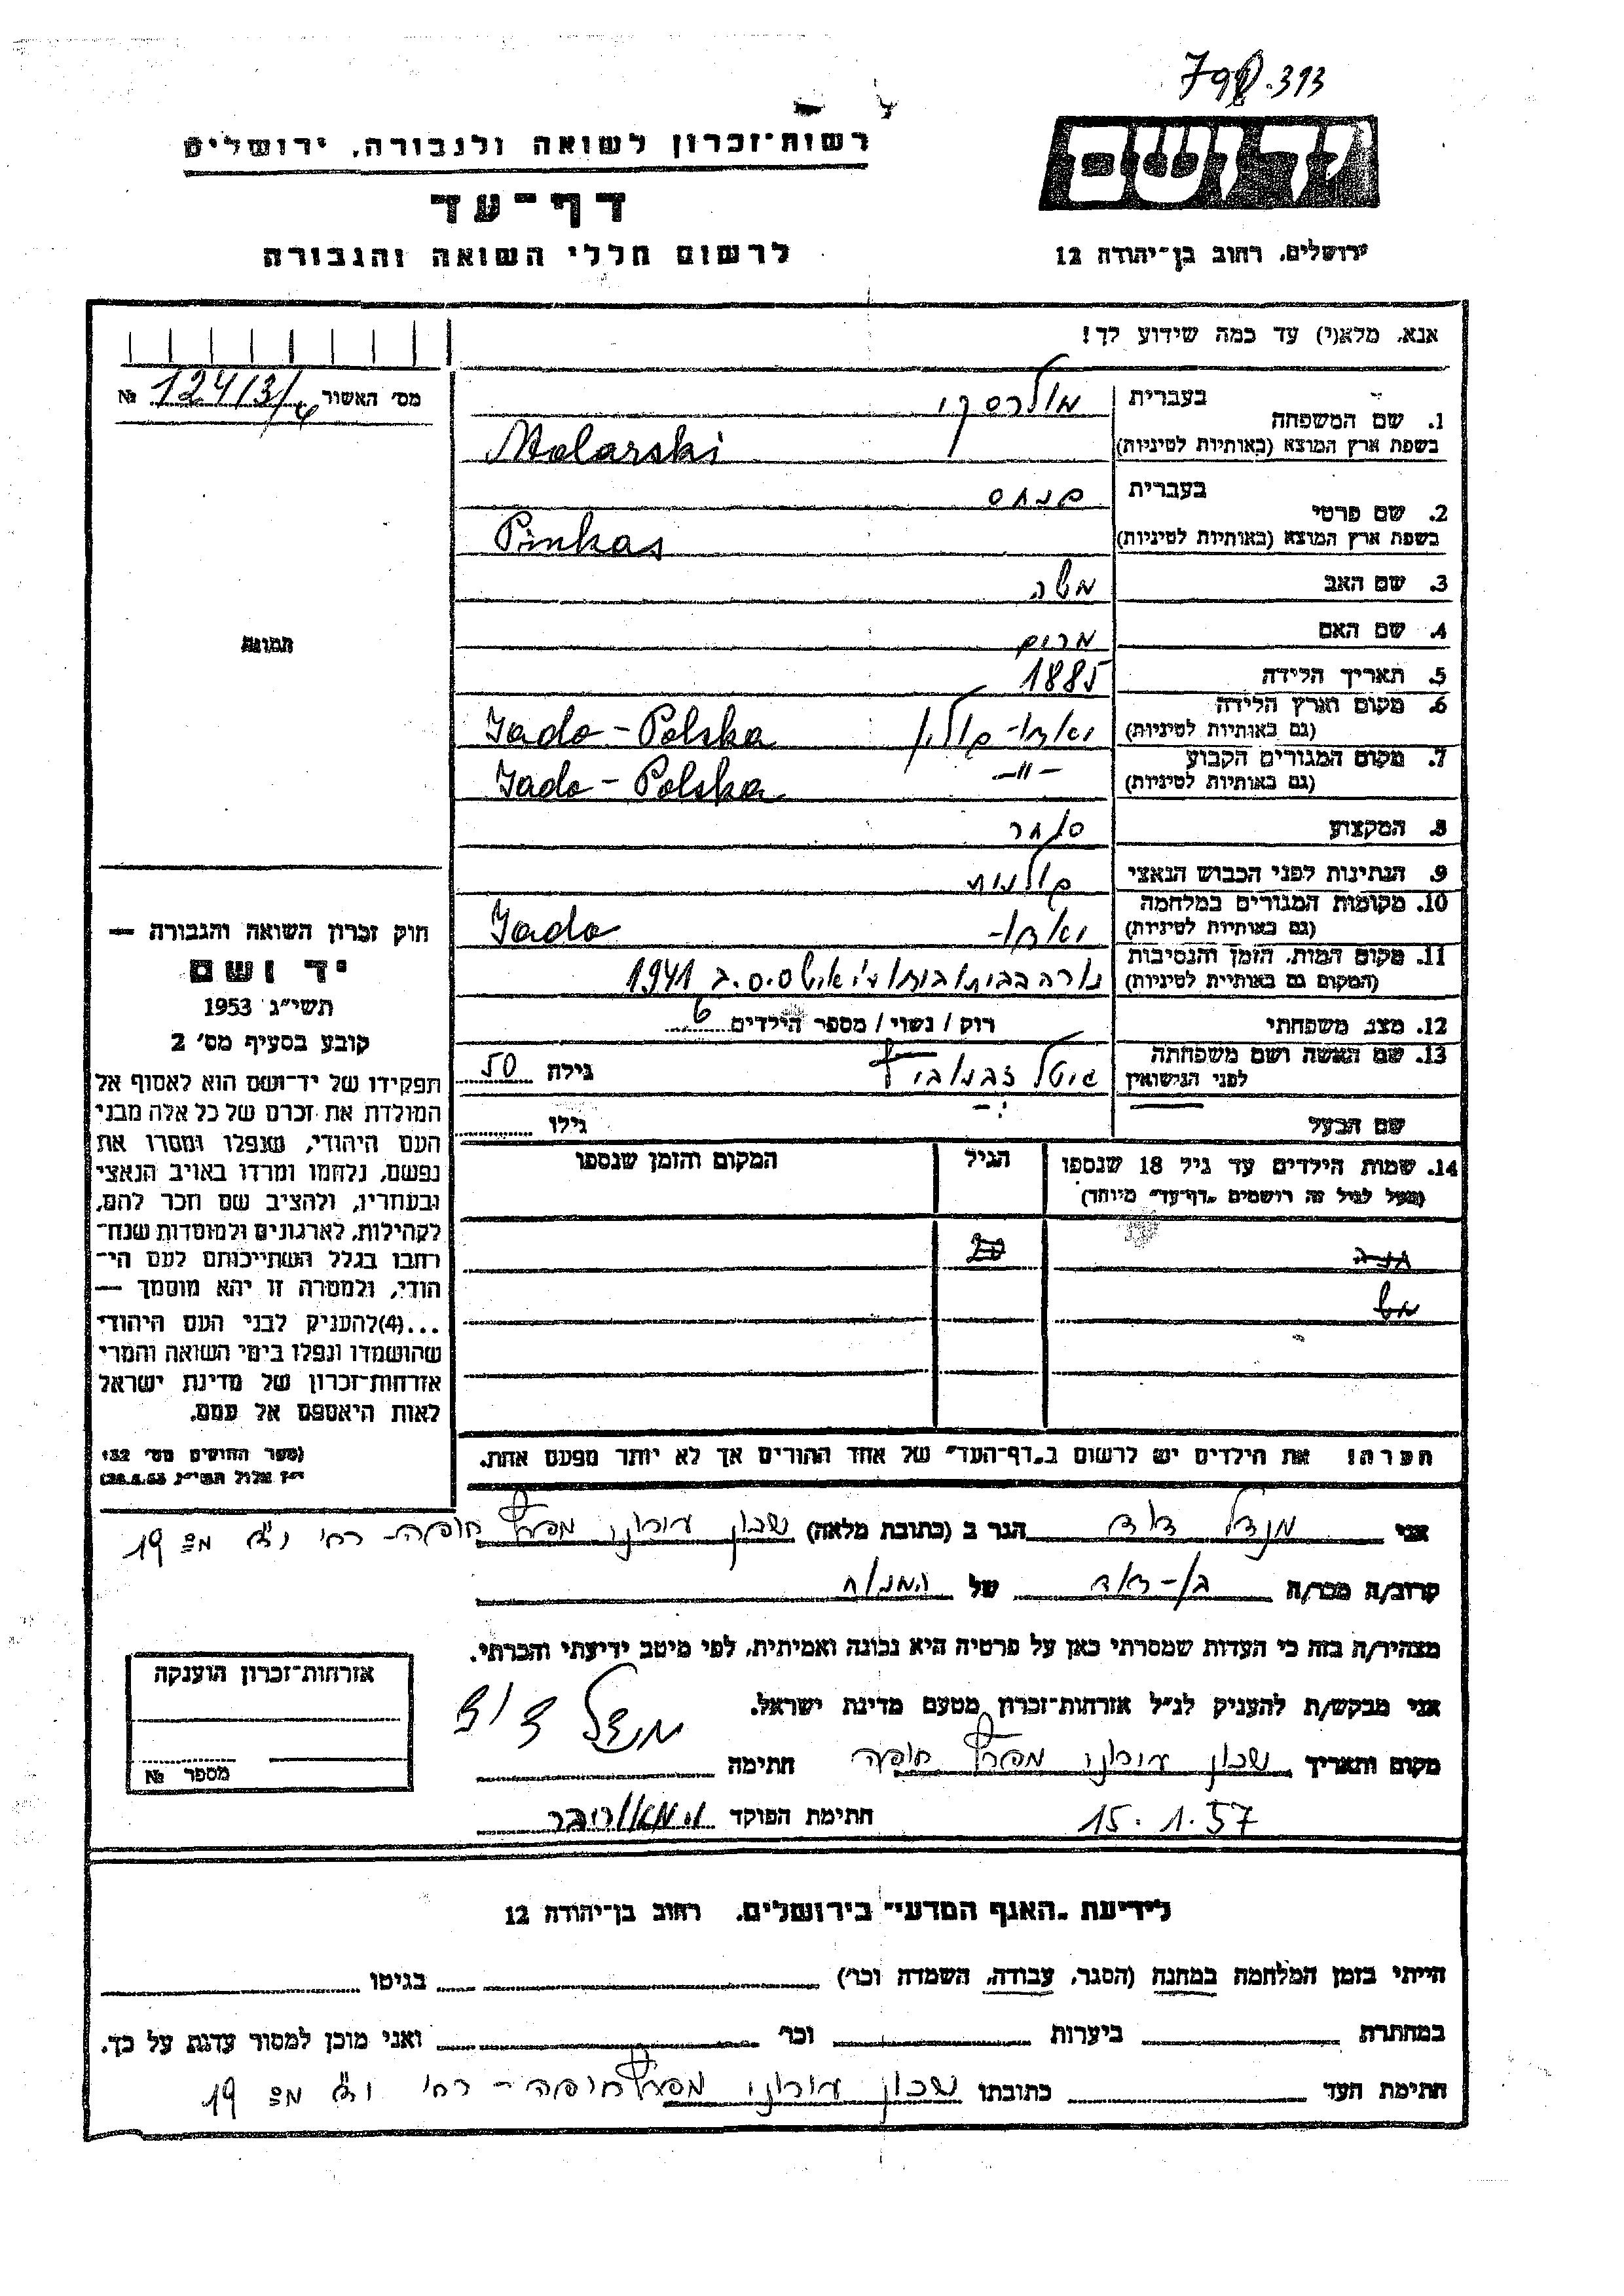 798.313
רשות־זכרון לשואה ולגבורה, ירושלים
דף־עד
לרשום חללי השואה והגבורה
יד ושם
ירושלים, רחוב בן־יהודה 12
אנא, מלא(י) עד כמה שידוע לך!
מס' האשור 12413/ №
1. שם המשפחה בעברית מולרסקי
בשפת ארץ המוצא (באותיות לטיניות) Molarski
2. שם פרטי בעברית פנחס
בשפת ארץ המוצא (באותיות לטיניות) Pinkas
3. שם האב משה
4. שם האם מרים
5. תאריך הלידה 1885
6. מקום וארץ הלידה
(גם באותיות לטיניות) פולין Jado - Polska
7. מקום המגורים הקבוע
(גם באותיות לטיניות) -"- Jado - Polska
8. המקצוע סוחר
9. הנתינות לפני הכבוש הנאצי פולנית
10. מקומות המגורים במלחמה
(גם באותיות לטיניות) Jado
11. מקום המות, הזמן והנסיבות
(המקום גם באותיית לטיניות) נורה בביתו ס.ס. ב 1941
12. מצב משפחתי רוק / נשוי / מספר הילדים 6
13. שם האשה ושם משפחתה
לפני הנישואין גיטל גילה 50
שם הבעל גילו
14. שמות הילדים עד גיל 18 שנספו הגיל המקום והזמן שנספו
(מעל לגיל זה רושמים "דף־עד" מיוחד)
הערה! את הילדים יש לרשום ב"דף־העד" של אחד ההורים אך לא יותר מפעם אחת.
תמונה
חוק זכרון השואה והגבורה —
יד ושם
תשי״ג 1953
קובע בסעיף מס' 2
תפקידו של יד־ושם הוא לאסוף אל
המולדת את זכרם של כל אלה מבני
העם היהודי, שנפלו ומסרו את
נפשם, נלחמו ומרדו באויב הנאצי
ובעוזריו, ולהציב שם וזכר להם,
לקהילות, לארגונים ולמוסדות שנח־
רבו בגלל השתייכותם לעם הי־
הודי, ולמטרה זו יהא מוסמך —
...(4)להעניק לבני העם היהודי
שהושמדו ונפלו בימי השואה והמרי
אזרחות־זכרון של מדינת ישראל
לאות היאספם אל עמם.
(ספר החוקים מס' 132
י״ז אלול תשי״ג, 28.8.53)
אני מנדל דוד הגר ב (כתובת מלאה) שכון עירוני מפרץ חיפה - רח' מס 19
קרוב/ה מכר/ה בן-דוד של המנוח
מצהיר/ה בזה כי העדות שמסרתי כאן על פרטיה היא נכונה ואמיתית, לפי מיטב ידיעתי והכרתי.
אני מבקש/ת להעניק לנ״ל אזרחות־זכרון מטעם מדינת ישראל.
מקום ותאריך שכון עירוני מפרץ חיפה חתימה מנדל דוד
15.1.57 חתימת הפוקד
אזרחות־זכרון הוענקה
מספר №
לידיעת "האגף המדעי" בירושלים, רחוב בן־יהודה 12
הייתי בזמן המלחמה במחנה (הסגר, עבודה, השמדה וכר') בגיטו
במחתרת ביערות וכר' ואני מוכן למסור עדות על כך.
חתימת העד כתובתו שכון עירוני מפרץ חיפה - רח' מס 19